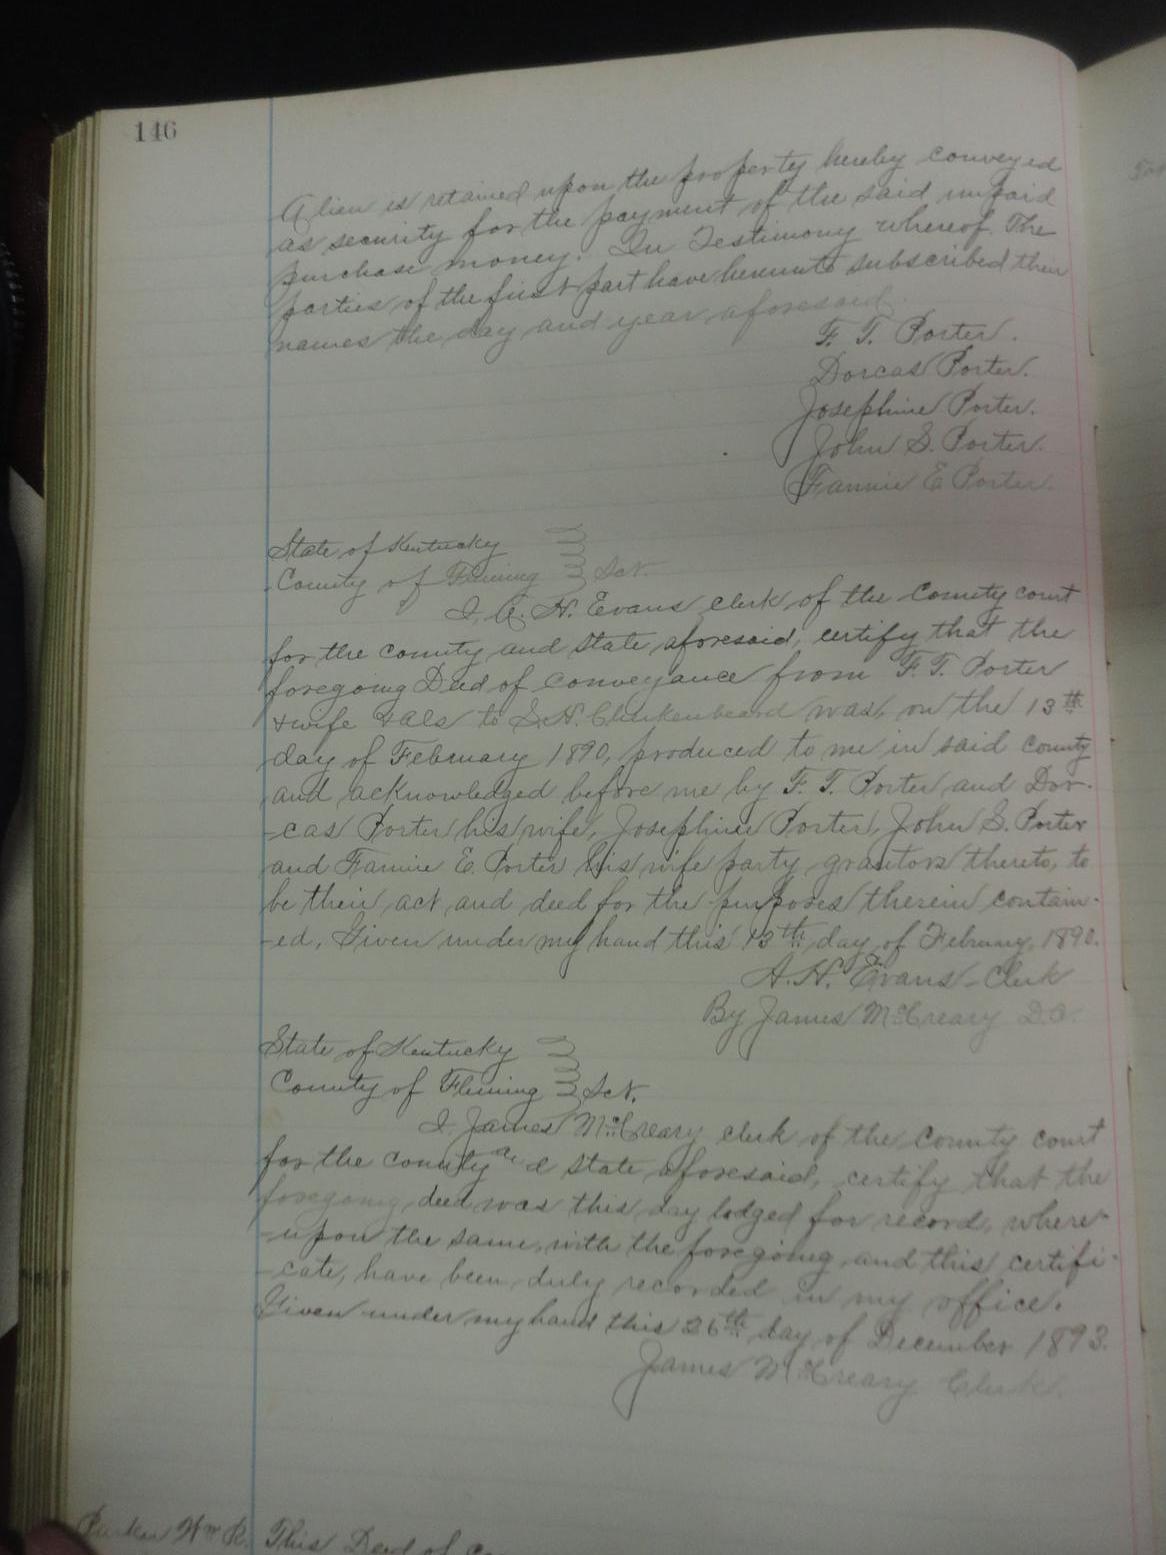 146
A lien is retained upon the property hereby conveyed
as security for the payment of the said unpaid
purchase money. In Testimony whereof. The
parties of the first part have hereunto subscribed their
names the day and year aforesaid
F. T. Porter.
Dorcas Porter.
Josephine Porter.
John S. Porter.
Fannie E Porter.
State of Kentucky
County of Fleming } Sct.
I, A. H. Evans clerk of the County court
for the county and state aforesaid, certify that the
foregoing Deed of conveyance from F. T. Porter
& wife & als to S. H. Clarkenbeard was, on the 13th
day of February 1890, produced to me in said county
and acknowledged before me by F. T. Porter and Dor-
-cas Porter his wife, Josephine Porter, John S. Porter
and Fannie E. Porter his wife party grantors thereto, to
be their act and deed for the purposes therein contain-
-ed. Given under my hand this 13th day of February, 1890.
A. H. Evans - Clerk
By James McCreary D.C.
State of Kentucky
County of Fleming } Sct.
I James McCreary clerk of the county court
for the county and state aforesaid, certify that the
foregoing deed was this day lodged for record, where-
-upon the same, with the foregoing and this certifi-
-cate, have been duly recorded in my office.
Given under my hand this 26th day of December 1893.
James McCreary Clerk.
Parker Wm R. This Deed of